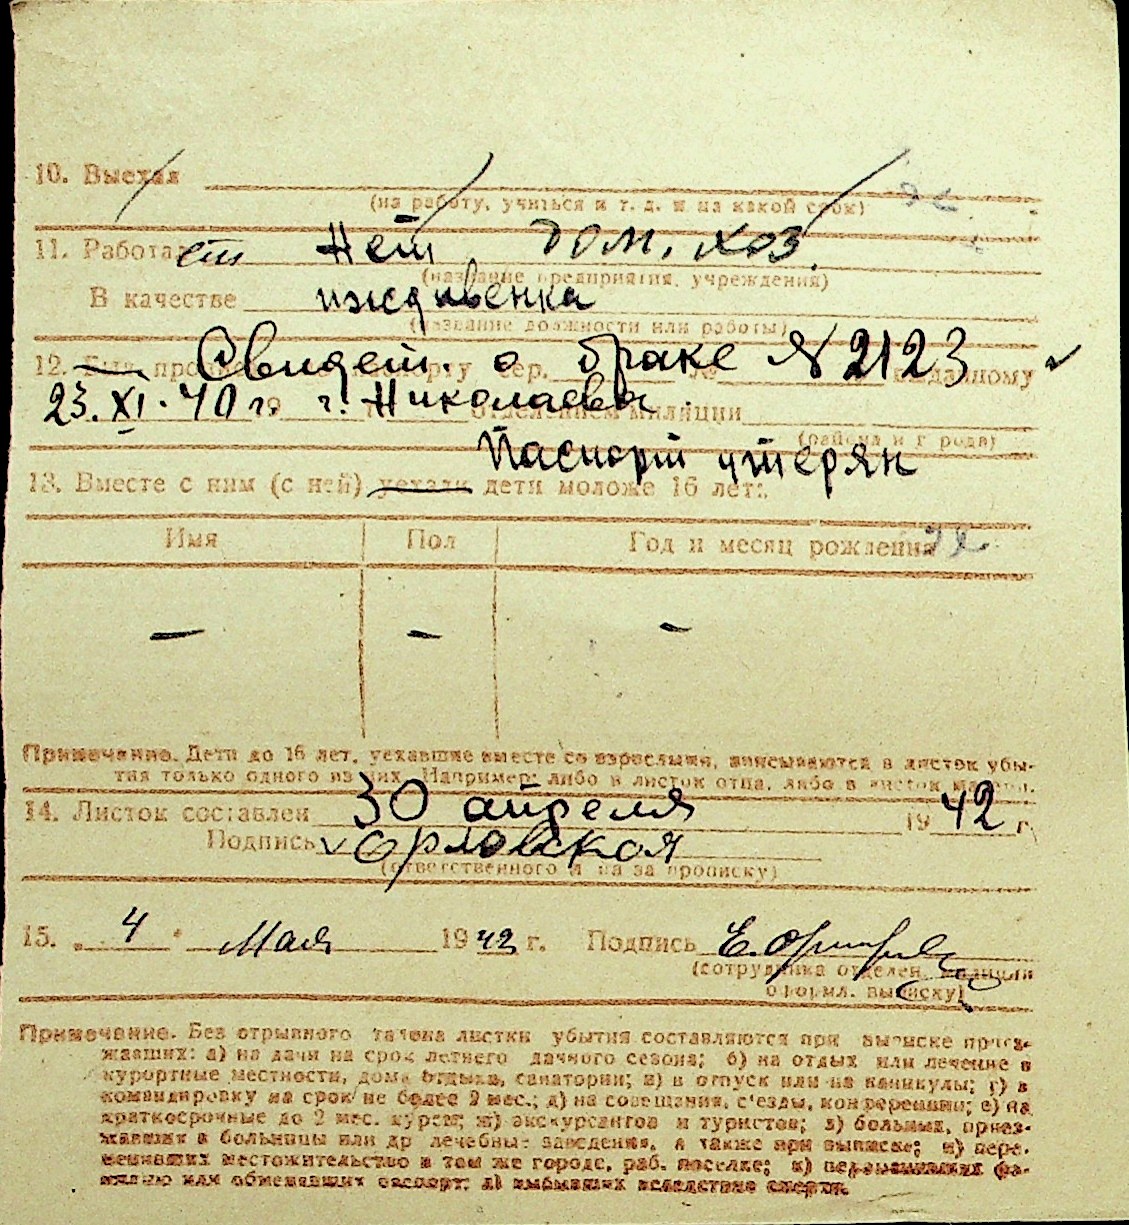 10. Выехал
(на работу, учиться и т. д. и на какой срок)
11. Работает Нет дом. хоз.
(название предприятия, учреждения)
В качестве иждивенка
(название должности или работы)
12. Был Свидет. о браке № 2123
сер. выданному
23. XI. 40 г. г. Николаевы.
отделением милиции
(района и города)
Паспорт утерян
13. Вместе с ним (с ней) уехали дети моложе 16 лет:
Имя Пол Год и месяц рождения
— — —
Примечание. Дети до 16 лет, уехавшие вместе со взрослыми, вписываются в листок убы-
тия только одного из них. Например: либо в листок отца, либо в листок матери.
14. Листок составлен 30 апреля 1942 г.
Подпись Орловская
(ответственного за прописку)
15. „4" Мая 1942 г. Подпись
(сотрудника отделен. милиции
оформл. выписку)
Примечание. Без отрывного талона листки убытия составляются при выписке приез-
жавших: а) на дачи на срок летнего дачного сезона; б) на отдых или лечение в
курортные местности, дома отдыха, санатории; в) в отпуск или на каникулы; г) в
командировку на срок не более 2 мес.; д) на совещания, с'езды, конференции; е) на
краткосрочные до 2 мес. курсы; ж) экскурсантов и туристов; з) больных, приез-
жавших в больницы или др лечебные заведения, а также при выписке; и) пере-
менивших местожительство в том же городе, раб. поселке; к) переменивших фа-
милию или обменявших паспорт; л) выбывших вследствие смерти.